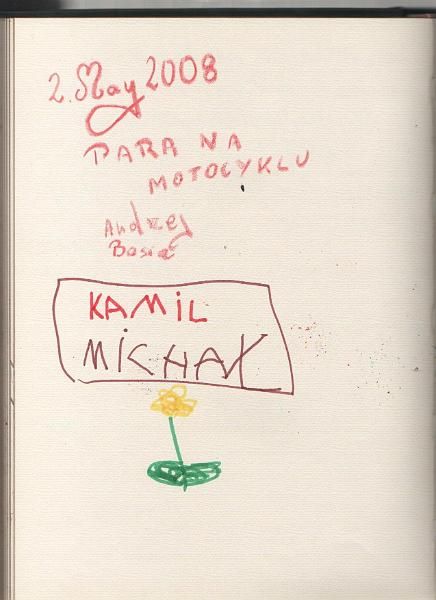 2. May 2008
PARA NA
MOTOCYKLU
Andrzej
Basia
KAMIL
MICHAŁ